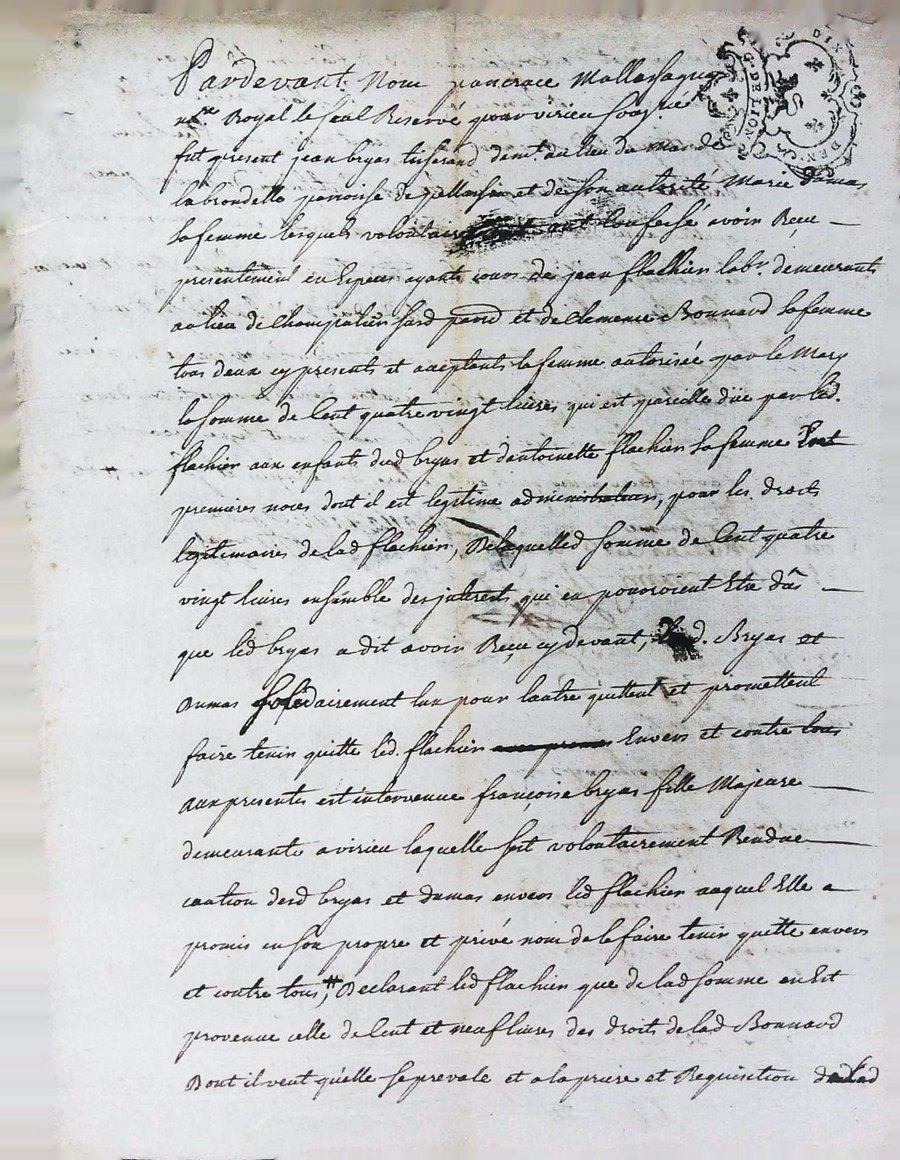 Pardevant Nous pancrace Mallassagne
n.re Royal le seul Reservé pour virieu sousné
fut present jean bryas tisserand demt. au lieu du mas de
la brondelle paroisse de pellussin et de son autorité Marie dumas
sa femme lesquels volontairement ont confessé avoir Reçu
presentement en Especes ayants cours de jean flachier labr. demeurants
au lieu de Champailier sard parrd et de clemence Bonnard sa femme
tous deux cy presents et aceptants la femme autorisée par le Mary
la somme de Cent quatre vingt livres qui est pareille düe par led.
flachier aux enfants dud bryas et dantoinette flachier sa femme En
premieres noces dont il est legitime administrateur, pour les droits
legitimaires de lad flachier, De laquelled somme de Cent quatre
vingt livres ensemble des jnterests qui en pouvoient Etre dûs
que led bryas a dit avoir Reçu cydevant, Led. Bryas et
Dumas solidairement lun pour lautre quittent et promettent
faire tenir quitte led. flachier Envers et contre tous
aux presentes est intervenue françoise bryas fille Majeure
demeurante a virieu laquelle sest volontairement Rendue
caution desd bryas et dumas envers led flachier auquel Elle a
promis en son propre et privé nom de le faire tenir quitte envers
et contre tous, # Declarant led flachier que de lad somme en Est
provenue celle de Cent et neuf livres des droits de lad Bonnard
Dont il veut quelle se prevale et a la priere et Requisition de lad
G. DE LION